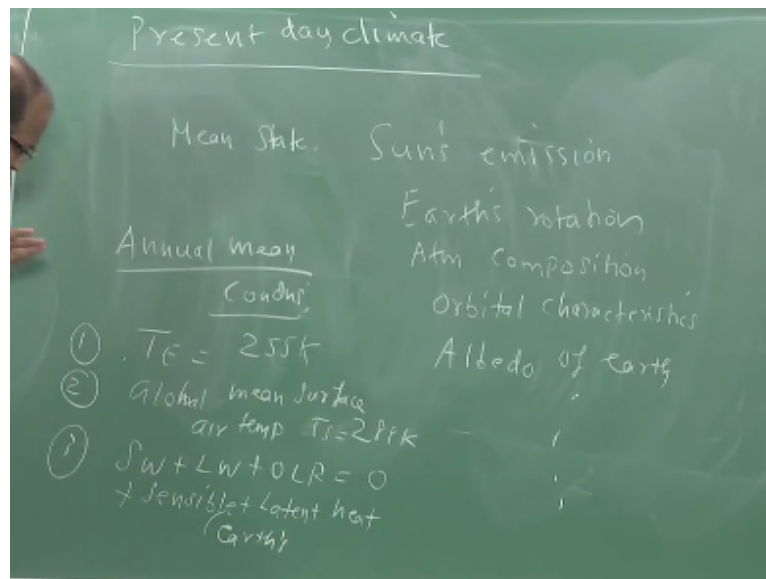 Present day climate
Mean State.
Sun's emission
Earth's rotation
Atm Composition
Orbital characteristics
Albedo of earth
Annual mean
Condns.
① TE = 255K
② Global mean surface
air temp Ts=288K
③ SW + LW + OLR = 0
+ Sensible + Latent heat
(Earth's